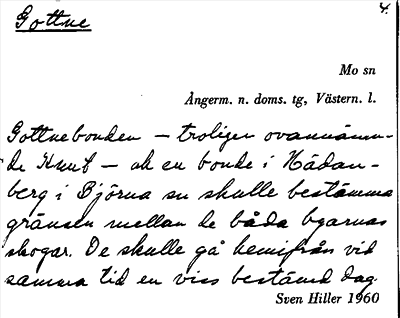 Gottne
4.
Mo sn
Ångerm. n. doms. tg, Västern. l.
Gottnebonden – troligen ovannämn-
de Knut – och en bonde i Nådan-
berg i Björna sn skulle bestämma
gränsen mellan de båda byarnas
skogar. De skulle gå hemifrån vid
samma tid en viss bestämd dag.
Sven Hiller 1960